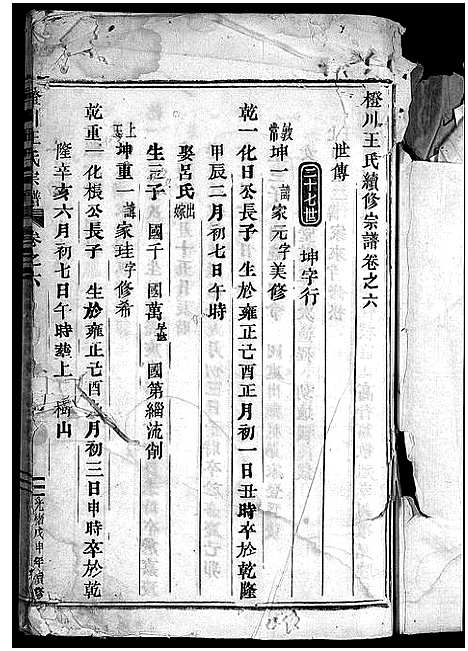 橙川王氏續修宗譜卷之六
世傳
二十七世 坤字行
敦常坤一諱家元字美修
乾一化日公長子 生於雍正己酉正月初一日丑時卒於乾隆
甲辰二月初七日午時
娶呂氏出嫁
生三子 國千 國萬 國第緇流削
上玉坤重一諱家珪字修希
乾重一化棖公長子 生於雍正己酉 月初三日申時卒於乾
隆辛亥六月初七日午時葬上 山
川王氏宗譜 卷之六
光緒戊申年續修